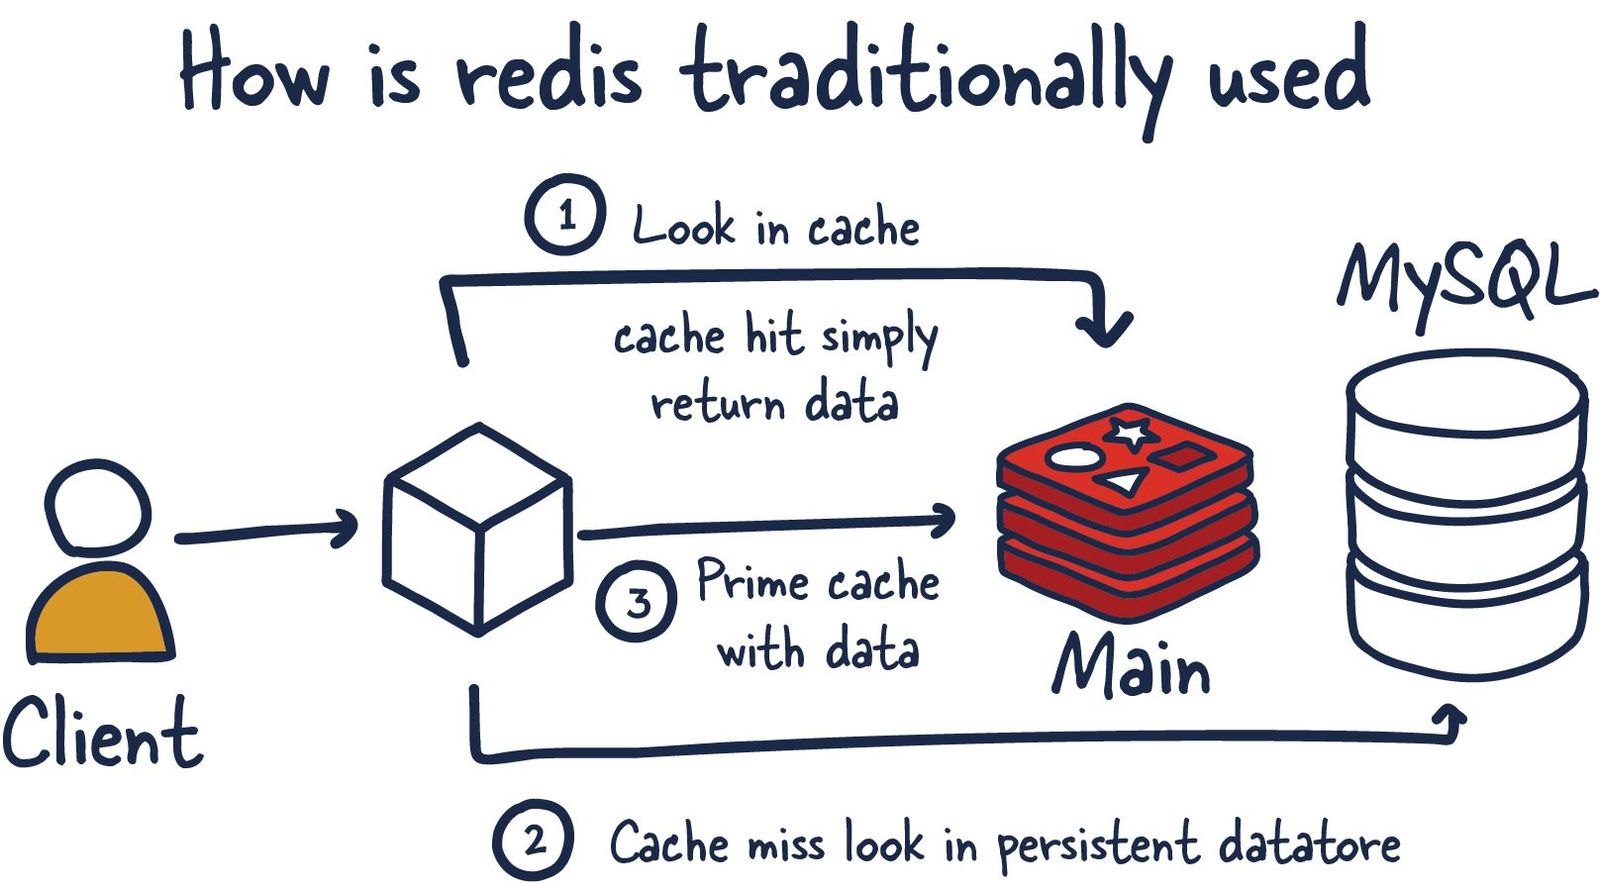 How is redis traditionally used
1 Look in cache
cache hit simply
return data
MySQL
3 Prime cache
with data
Main
Client
2 Cache miss look in persistent datatore